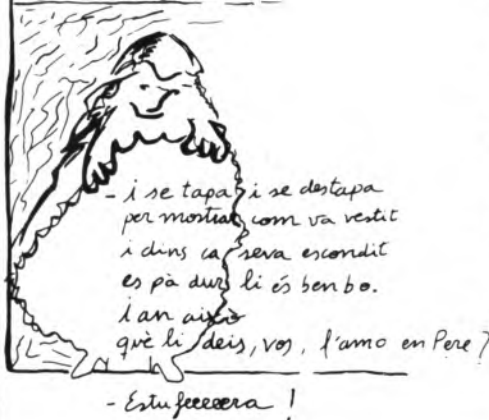 - i se tapa i se destapa
per mostrar com va vestit
i dins ca seva escondit
es pà dur li és ben bo.
i an això
què li deis, vos, l'amo en Pere?
- Estufeeeera!